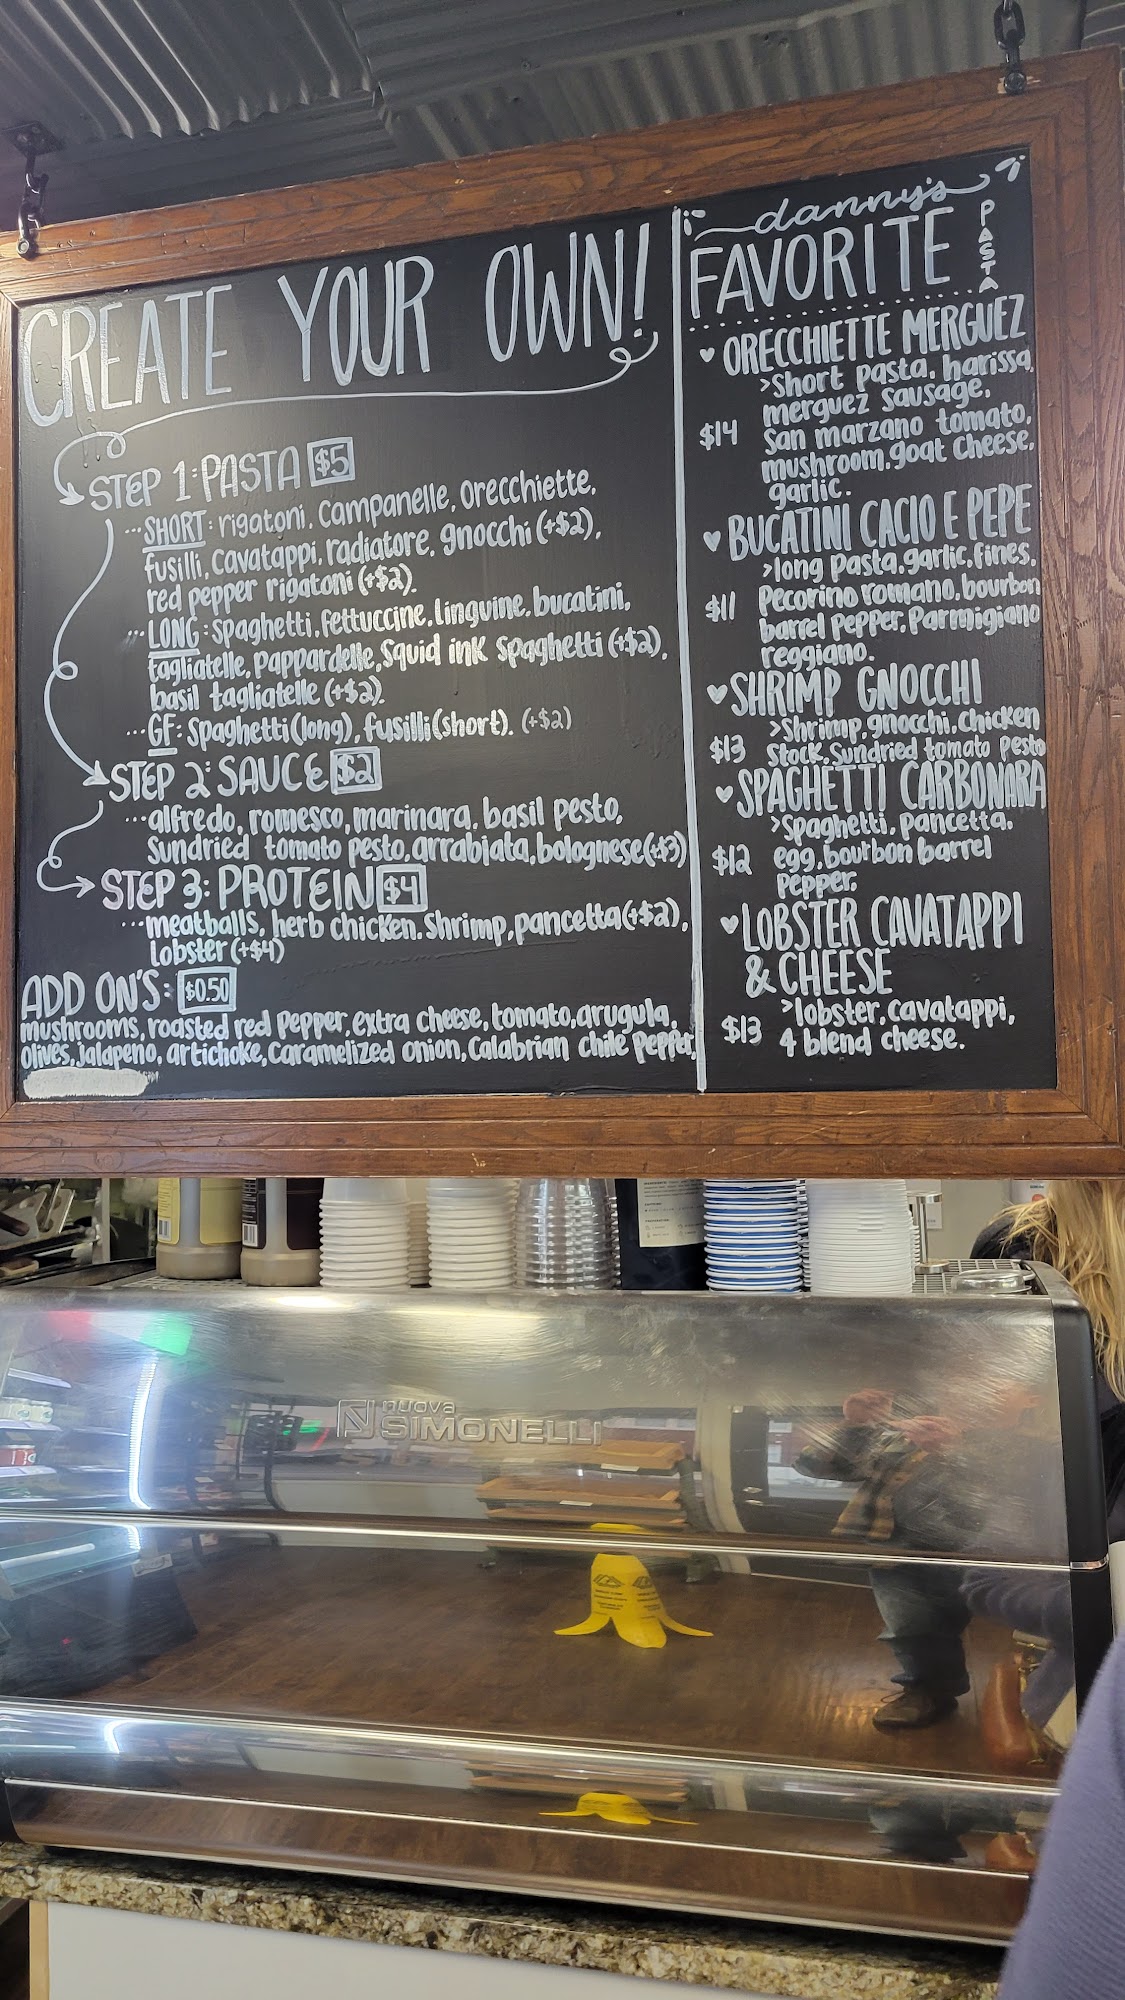 CREATE YOUR OWN!
STEP 1: PASTA $5
...SHORT: rigatoni, campanelle, orecchiette,
fusilli, cavatappi, radiatore, gnocchi (+$2),
red pepper rigatoni (+$2).
...LONG: spaghetti, fettuccine, linguine, bucatini,
tagliatelle, pappardelle, squid ink spaghetti (+$2),
basil tagliatelle (+$2).
...GF: spaghetti (long), fusilli (short). (+$2)
STEP 2: SAUCE $2
...alfredo, romesco, marinara, basil pesto,
sundried tomato pesto, arrabiata, bolognese (+$3)
STEP 3: PROTEIN $4
...meatballs, herb chicken, shrimp, pancetta (+$2),
lobster (+$4)
ADD ON'S: $0.50
mushrooms, roasted red pepper, extra cheese, tomato, arugula,
olives, jalapeno, artichoke, caramelized onion, calabrian chile pepper,
danny's
FAVORITE
PASTA
♥ ORECCHIETTE MERGUEZ
>short pasta, harissa,
merguez sausage,
$14 san marzano tomato,
mushroom, goat cheese,
garlic.
♥ BUCATINI CACIO E PEPE
>long pasta, garlic, fines,
$11 pecorino romano, bourbon
barrel pepper, parmigiano
reggiano.
♥ SHRIMP GNOCCHI
>shrimp, gnocchi, chicken
$13 stock, sundried tomato pesto
♥ SPAGHETTI CARBONARA
>spaghetti, pancetta,
$12 egg, bourbon barrel
pepper,
♥ LOBSTER CAVATAPPI
& CHEESE
>lobster, cavatappi,
$13 4 blend cheese.
nuova
SIMONELLI